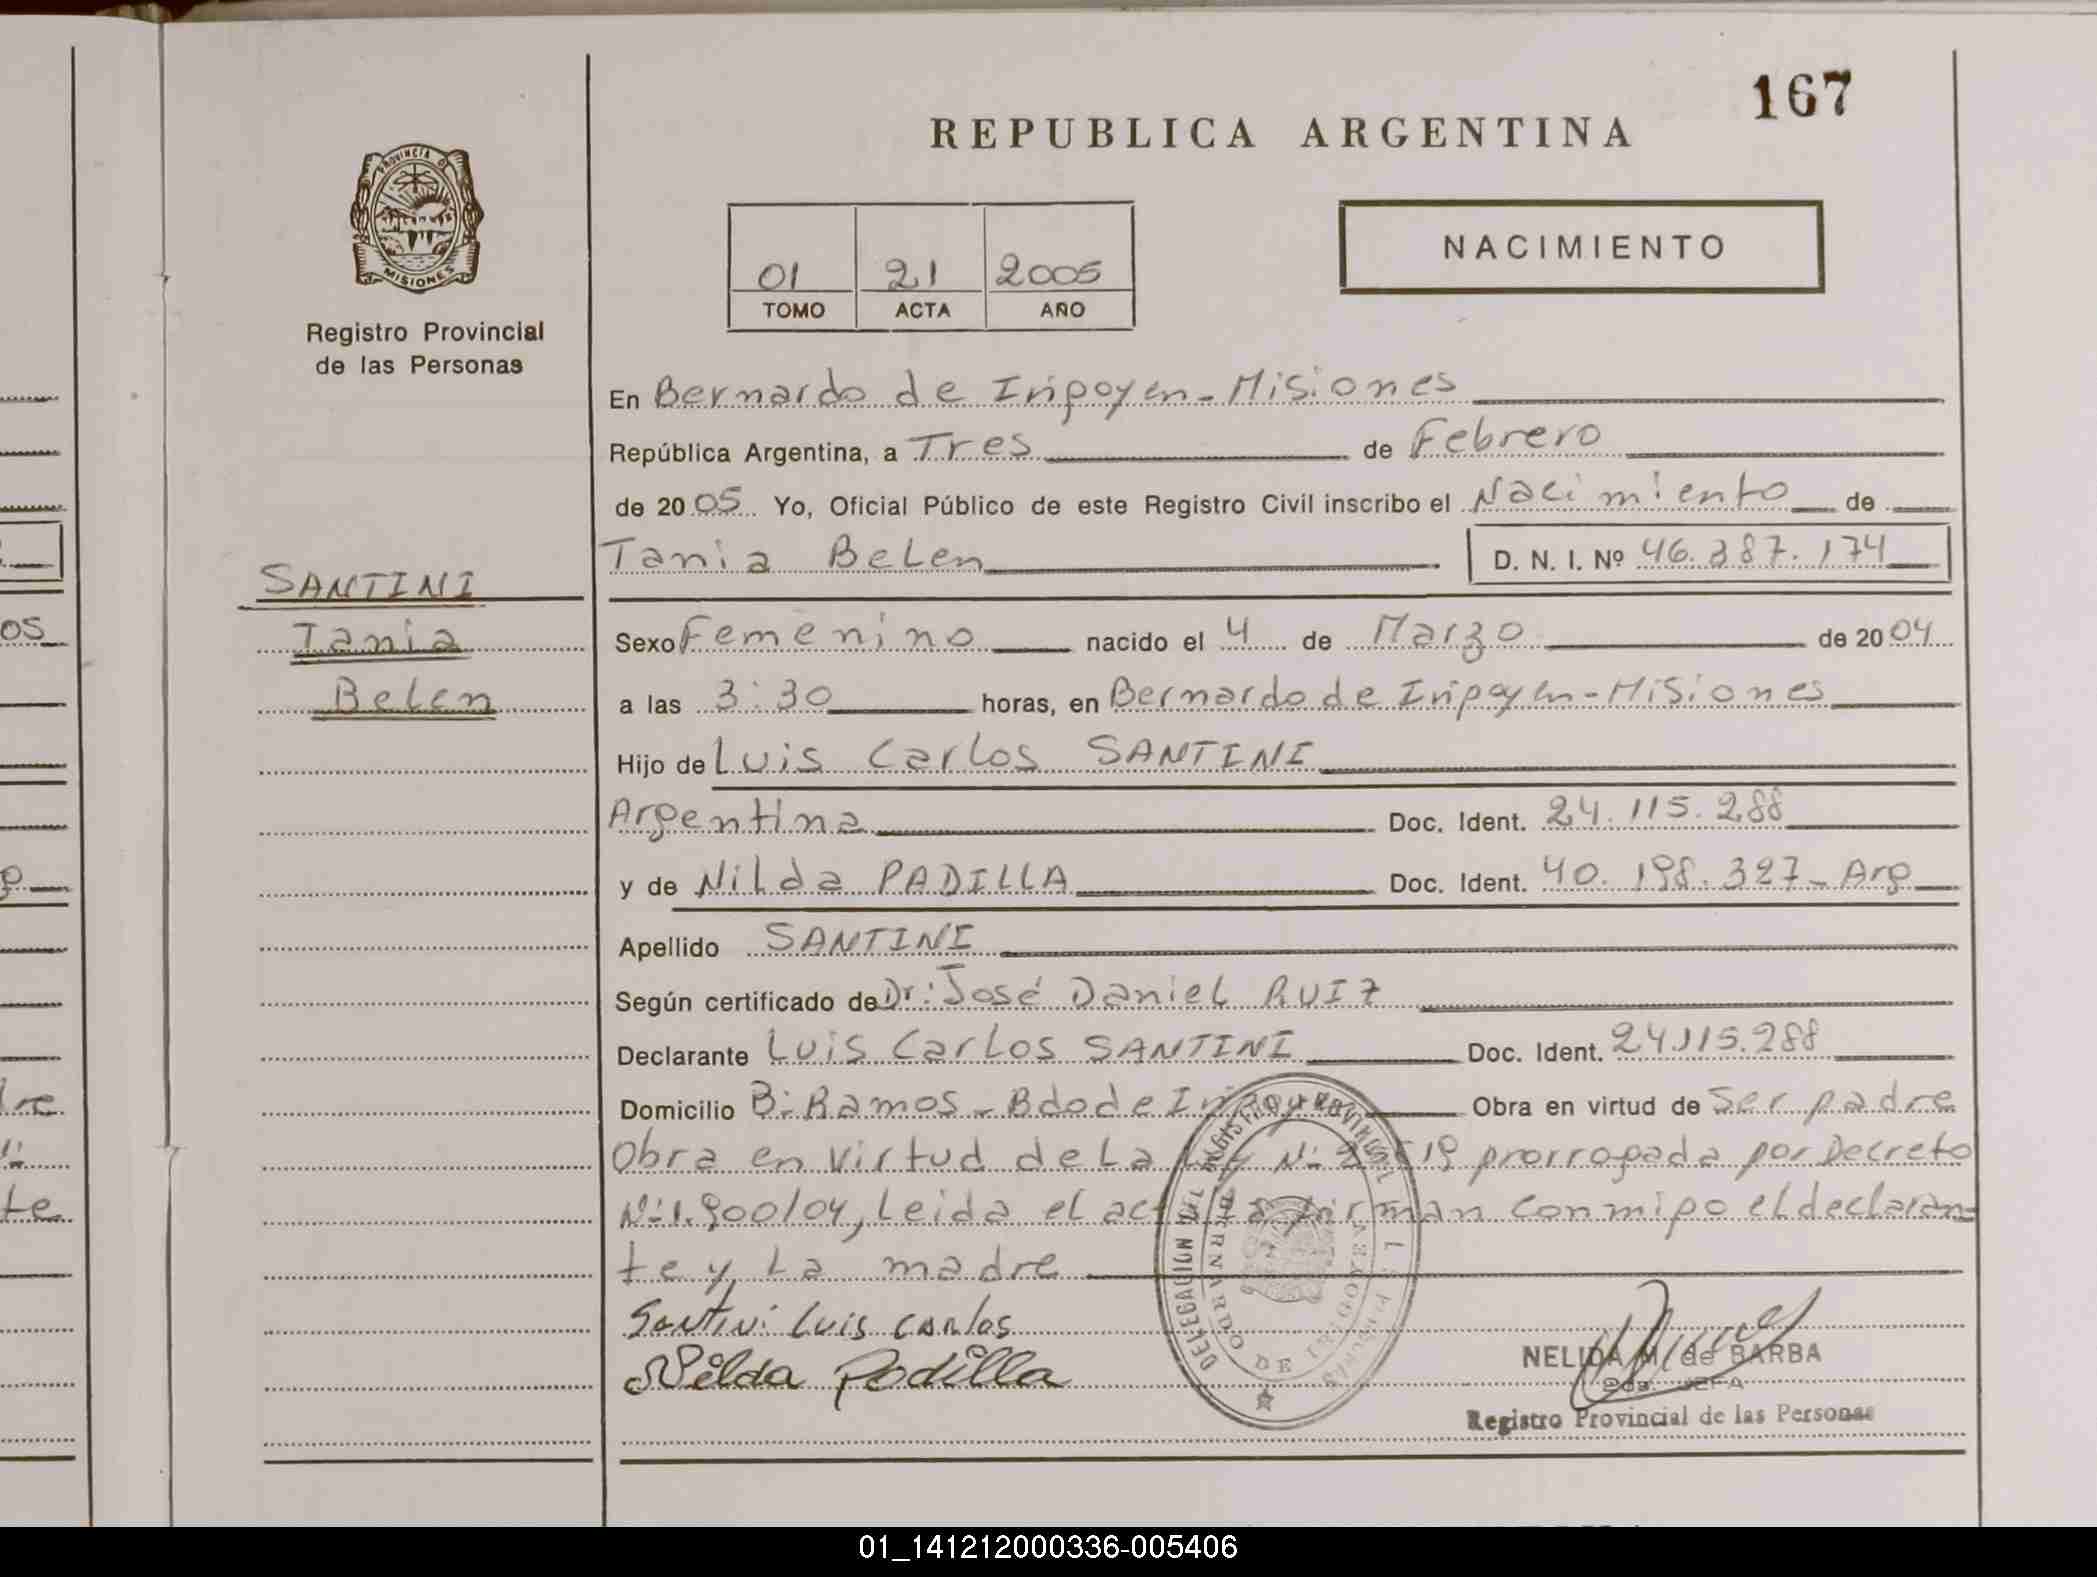 167
REPUBLICA ARGENTINA
PROVINCIA DE
MISIONES
Registro Provincial
de las Personas
NACIMIENTO
01 21 2005
TOMO ACTA AÑO
En Bernardo de Irigoyen - Misiones
República Argentina, a Tres de Febrero
de 2005 Yo, Oficial Público de este Registro Civil inscribo el Nacimiento de
Tania Belen D. N. I. Nº 46.387.174
SANTINI
Tania
Belen
Sexo Femenino nacido el 4 de Marzo de 2004
a las 3:30 horas, en Bernardo de Irigoyen - Misiones
Hijo de Luis Carlos SANTINI
Argentina Doc. Ident. 24.115.288
y de Nilda PADILLA Doc. Ident. 40.198.327 - Arg
Apellido SANTINI
Según certificado de Dr: José Daniel RUIZ
Declarante Luis Carlos SANTINI Doc. Ident. 24.115.288
Domicilio B: Ramos - Bdo de Irigoyen Obra en virtud de Ser padre
Obra en virtud de La Ley Nº 25819 prorrogada por Decreto
Nº 1.900/04, Leida el acta firman conmigo el declaran=
te y La madre
Santini Luis Carlos
Nilda Padilla
DELEGACION DEL REGISTRO PROVINCIAL
BERNARDO DE IRIGOYEN
NELIDA M. de BARBA
JEFA
Registro Provincial de las Personas
01_141212000336-005406